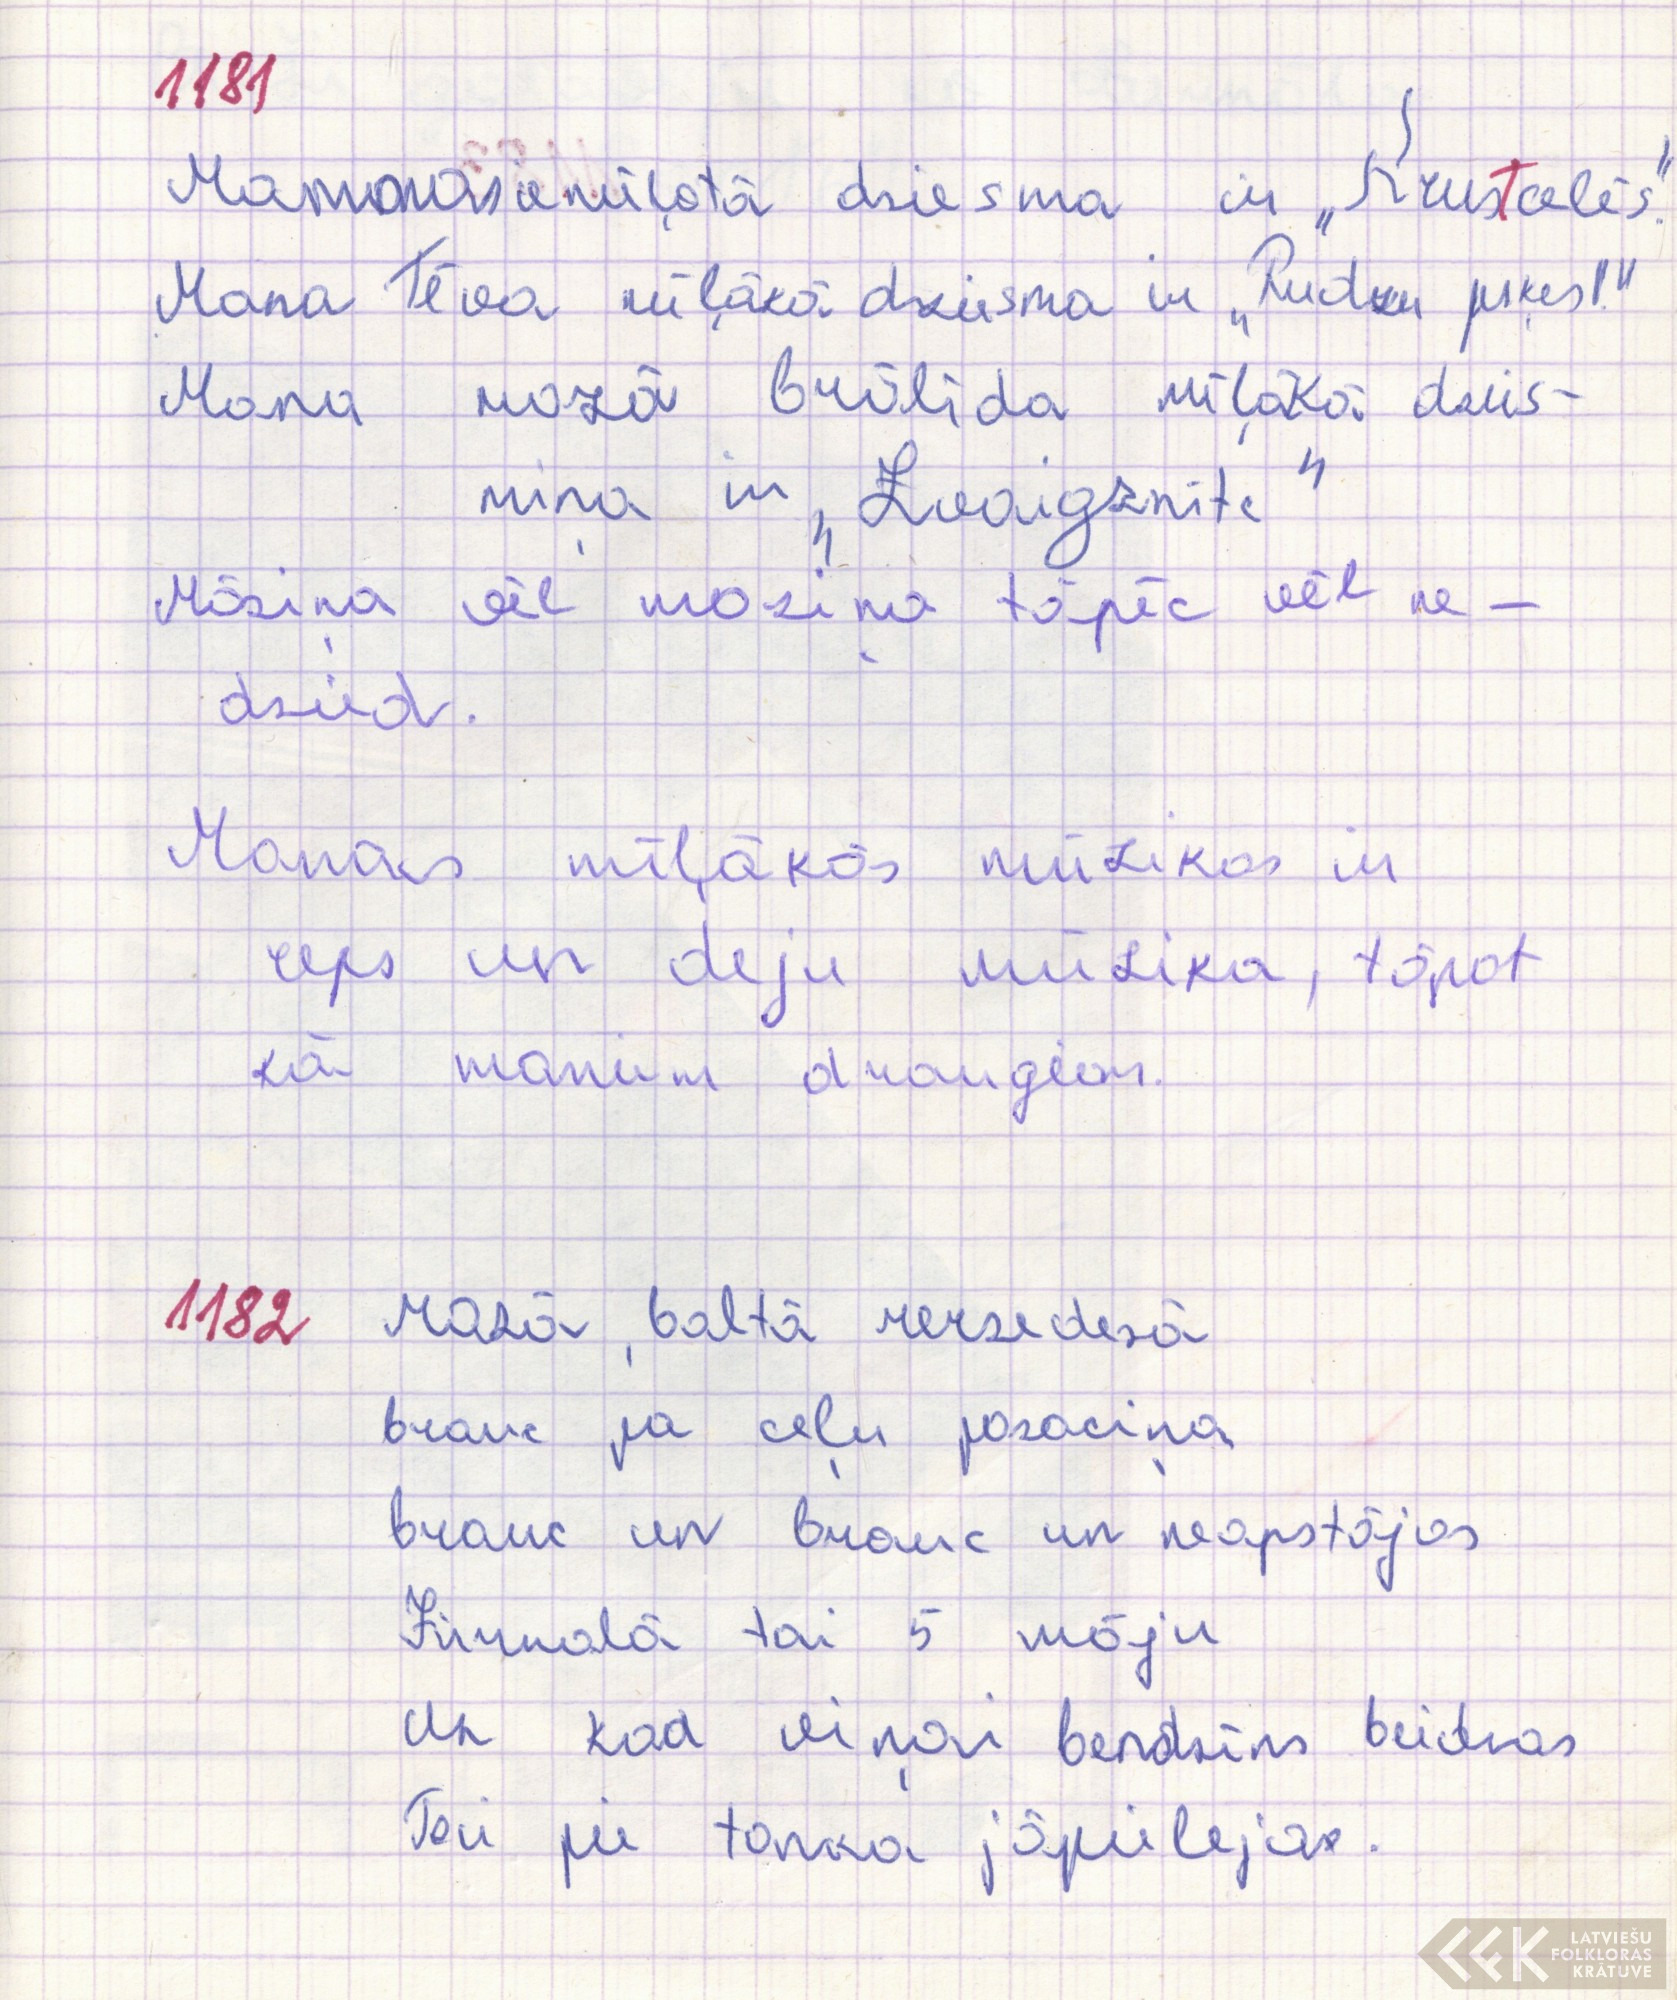 1181
mīļotā dziesma ir „Krustcelēs".
Mana Tēva mīļākā dziesma ir „Rudzu puķes!"
Mana mazā brālīda mīļākā dzies-
miņa ir „Zvaigznīte"
Māsiņa vēl maziņa tāpēc vēl ne-
dzied.
Manas mīļākās mūzikas ir
reps un deju mūzika, tāpat
kā maniem draugiem.
1182 Mazā, baltā mersedesā
brauc pa ceļu pasaciņa
brauc un brauc un neapstājas
Jūrmalā tai 5 māju
Un kad viņai bendzīns beidzas
Tai pie tanka jāpielejas.
LATVIEŠU
FOLKLORAS
KRĀTUVE